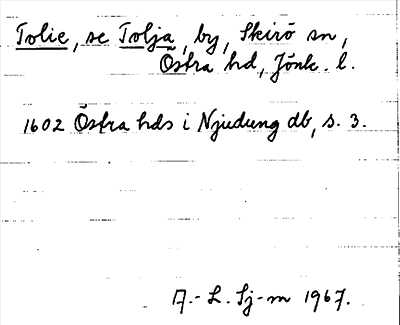 Tolie, se Tolja, by, Skirö sn,
Östra hd, Jönk. l.
1602 Östra hds i Njudung db, s. 3.
A.-L. Sj-m 1967.